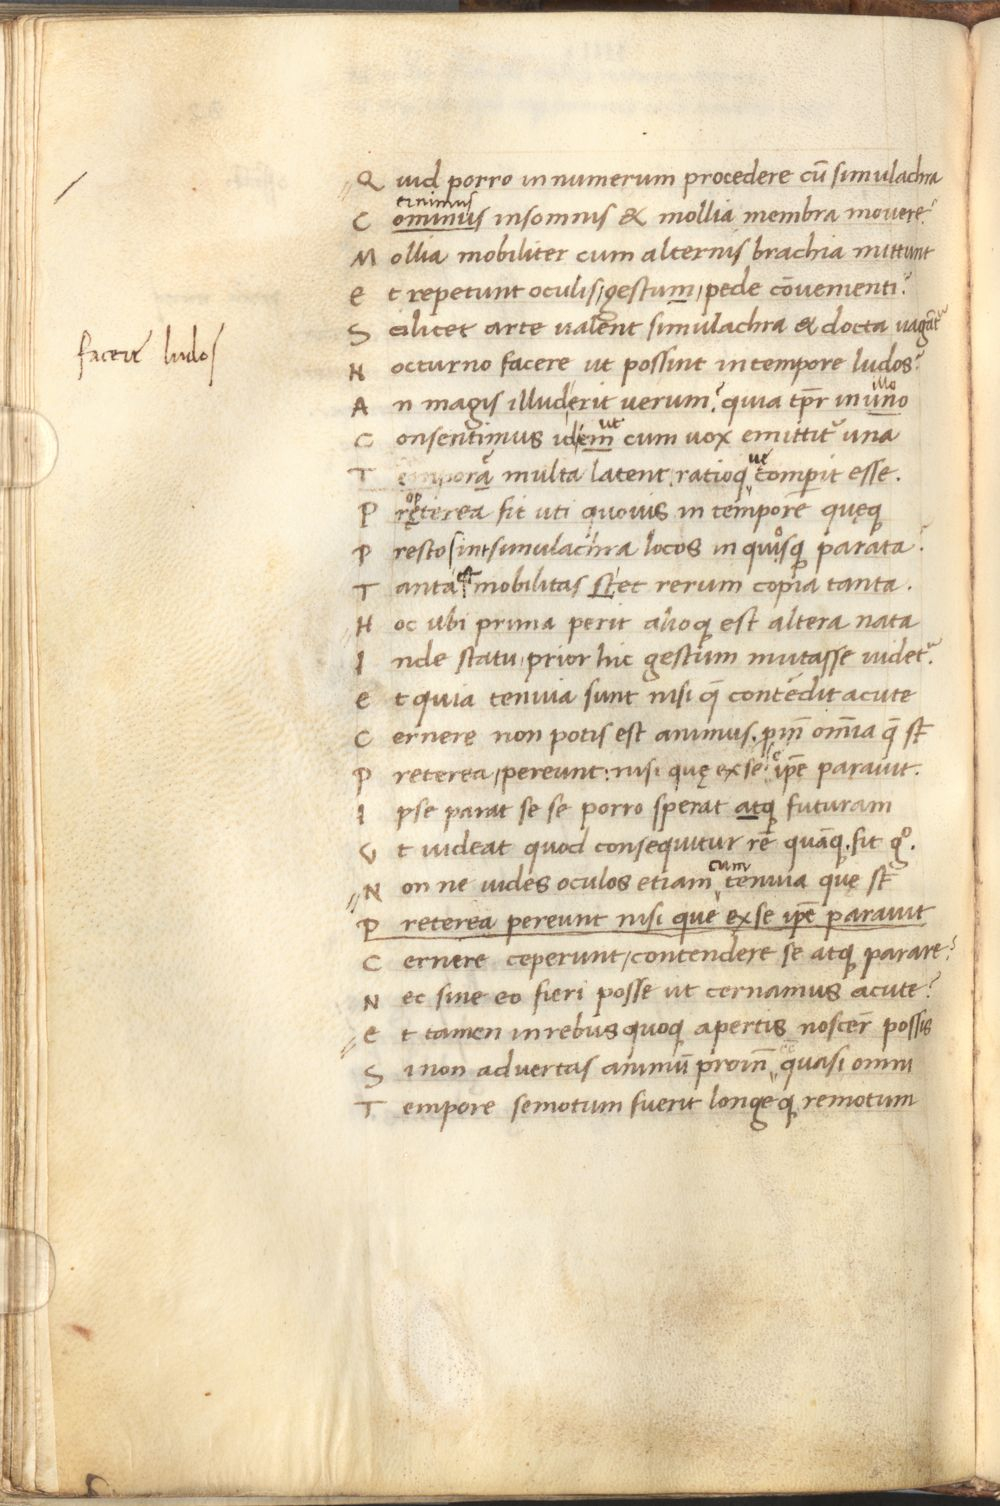 Quid porro in numerum procedere cū simulachra
cernimus
Cominus insomnis & mollia membra movere?
Mollia mobiliter cum alternis brachia mittunt
Et repetunt oculis/gestum/pede cōvementi?
facere ludos
Scilicet arte valent simulachra & docta vagāt
Nocturno facere ut possint in tempore ludos?
illo
An magis illud erit verum? quia tp̄r in uno
ut
Consentimus idem cum vox emittit᷑ una
ue
Temporā multa latent, ratioq; comperit esse.
op
Pręterea fit uti quovis in tempore quęq;
Presto sint simulachra locos in quisq; parata?
Tanta mobilitas st̄ et rerum copia tanta.
Hoc ubi prima perit alioq; est altera nata
Inde statu/prior hic gestum mutasse videt᷑.
Et quia tenuia sunt nisi q̄ contēdit acute
Cernerę non potis est animus. ꝓin̄ om̄ia q̄ st̄
Preterea/pereunt: nisi quę ex se ip̄e paravit.
Ipse parat se se porro sperat atq; futuram
Ut videat quod consequitur rē quāq;. fit g°.
cum
Non ne vides oculos etiam tenuia quę st̄
Preterea pereunt nisi quę ex se ip̄e paravit
Cernere ceperunt/contendere se atq; parare?
Nec sine eo fieri posse ut cernamus acute?
Et tamen in rebus quoq; apertis noscer̄ possis
Si non advertas animū proin̄ quasi omni
Tempore semotum fuerit longeq; remotum